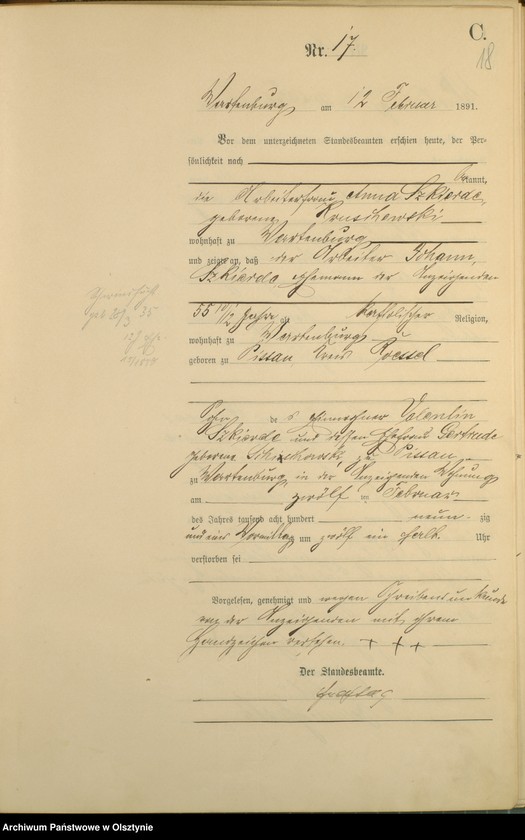 C.
18
Nr. 17.
Wartenburg am 12 Februar 1891.
Vor dem unterzeichneten Standesbeamten erschien heute, der Per-
sönlichkeit nach
bekannt,
die Arbeiterfrau Anna Szkierda,
geborene
wohnhaft zu Wartenburg
und zeigte an, daß der Arbeiter Johann
Szkierda, Ehemann der Anzeigenden
55 Jahre alt, katholischer Religion,
wohnhaft zu Wartenburg
geboren zu Pissau Kreis Roessel
Sohn des Einwohner Valentin
Szkierda und dessen Ehefrau Gertrude
geborene zu Pissau
zu Wartenburg in der Anzeigenden Wohnung
am zwölf ten Februar
des Jahres tausend acht hundert neun zig
und eins Vormittag um zwölf ein halb Uhr
verstorben sei
Vorgelesen, genehmigt und wegen Schreibensunkunde
von der Anzeigenden mit ihrem
Handzeichen versehen. + + +
Der Standesbeamte.
Archiwum Państwowe w Olsztynie